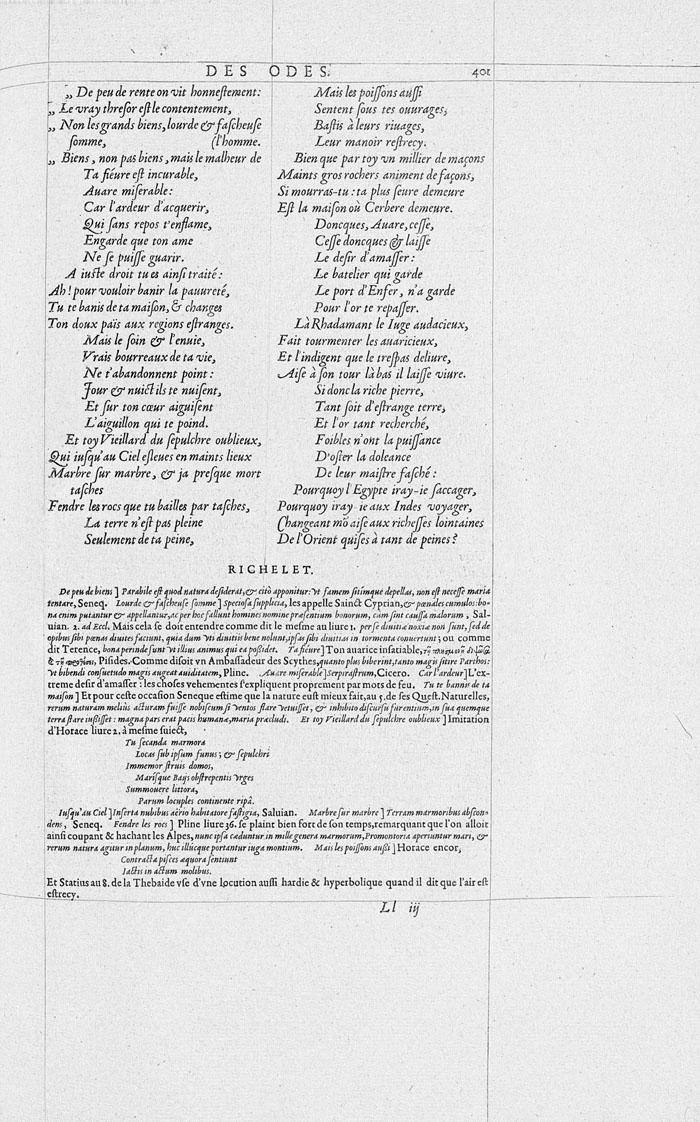 DES ODES. 401
„ De peu de rente on vit honnestement:
„ Le vray thresor est le contentement,
„ Non les grands biens, lourde & fascheuse
somme, (l'homme.
„ Biens, non pas biens, mais le malheur de
Ta fiéure est incurable,
Auare miserable:
Car l'ardeur d'acquerir,
Qui sans repos t'enflame,
Engarde que ton ame
Ne se puisse guarir.
A iuste droit tu es ainsi traité:
Ah! pour vouloir banir la pauureté,
Tu te banis de ta maison, & changes
Ton doux païs aux regions estranges.
Mais le soin & l'enuie,
Vrais bourreaux de ta vie,
Ne t'abandonnent point:
Jour & nuict ils te nuisent,
Et sur ton cœur aiguisent
L'aiguillon qui te poind.
Et toy Vieillard du sepulchre oublieux,
Qui iusqu'au Ciel esleues en maints lieux
Marbre sur marbre, & ja presque mort
tasches
Fendre les rocs que tu bailles par tasches,
La terre n'est pas pleine
Seulement de ta peine,
Mais les poissons aussi
Sentent sous tes ouurages,
Bastis à leurs riuages,
Leur manoir restrecy.
Bien que par toy vn millier de maçons
Maints gros rochers animent de façons,
Si mourras-tu: ta plus seure demeure
Est la maison où Cerbere demeure.
Doncques, Auare, cesse,
Cesse doncques & laisse
Le desir d'amasser:
Le batelier qui garde
Le port d'Enfer, n'a garde
Pour l'or te repasser.
Là Rhadamant le Iuge audacieux,
Fait tourmenter les auaricieux,
Et l'indigent que le trespas deliure,
Aise à son tour là bas il laisse viure.
Si donc la riche pierre,
Tant soit d'estrange terre,
Et l'or tant recherché,
Foibles n'ont la puissance
D'oster la doleance
De leur maistre fasché:
Pourquoy l'Egypte iray-ie saccager,
Pourquoy iray-ie aux Indes voyager,
Changeant mõ aise aux richesses lointaines
De l'Orient quises à tant de peines?
RICHELET.
De peu de biens ] Parabile est quod natura desiderat, & citò apponitur: vt famem sitimque depellas, non est necesse maria
tentare, Seneq. Lourde & fascheuse somme ] Speciosa supplicia, les appelle Sainct Cyprian, & pœnales cumulos: bo-
na enim putantur & appellantur, ac per hoc fallunt homines nomine præsentium bonorum, cùm sint caussa malorum, Sal-
uian. 2. ad Eccl. Mais cela se doit entendre comme dit le mesme au liure 1. per se diuitiæ noxiæ non sunt, sed de
opibus sibi pœnas diuites faciunt, quia dum vti diuitiis bene nolunt, ipsas sibi diuitias in tormenta conuertunt; ou comme
dit Terence, bona perinde sunt vt illius animus qui ea possidet. Ta fiéure ] Ton auarice insatiable,
Pisides. Comme disoit vn Ambassadeur des Scythes, quanto plus biberint, tanto magis sitire Parthos:
vt bibendi consuetudo magis augeat auiditatem, Pline. Auare miserable ] Serpirastrum, Cicero. Car l'ardeur ] L'ex-
treme desir d'amasser: les choses vehementes s'expliquent proprement par mots de feu. Tu te bannis de ta
maison ] Et pour ceste occasion Seneque estime que la nature eust mieux fait, au 5. de ses Quest. Naturelles,
rerum naturam meliùs acturam fuisse nobiscum si ventos flare vetuisset, & inhibito discursu furentium, in sua quemque
terra stare iussisset: magna pars erat pacis humanæ, maria præcludi. Et toy Vieillard du sepulchre oublieux ] Imitation
d'Horace liure 2. à mesme suiect,
Tu secanda marmora
Locas sub ipsum funus; & sepulchri
Immemor struis domos,
Marisque Baijs obstrepentis vrges
Summouere littora,
Parum locuples continente ripâ.
Iusqu'au Ciel ] Inserta nubibus aërio habitatore fastigia, Saluian. Marbre sur marbre ] Terram marmoribus abscon-
dens, Seneq. Fendre les rocs ] Pline liure 36. se plaint bien fort de son temps, remarquant que l'on alloit
ainsi coupant & hachant les Alpes, nunc ipsa cæduntur in mille genera marmorum, Promontoria aperiuntur mari, &
rerum natura agitur in planum, huc illúcque portantur iuga montium. Mais les poissons aussi ] Horace encor,
Contracta pisces æquora sentiunt
Iactis in altum molibus.
Et Statius au 8. de la Thebaide vse d'vne locution aussi hardie & hyperbolique quand il dit que l'air est
estrecy.
Ll iij